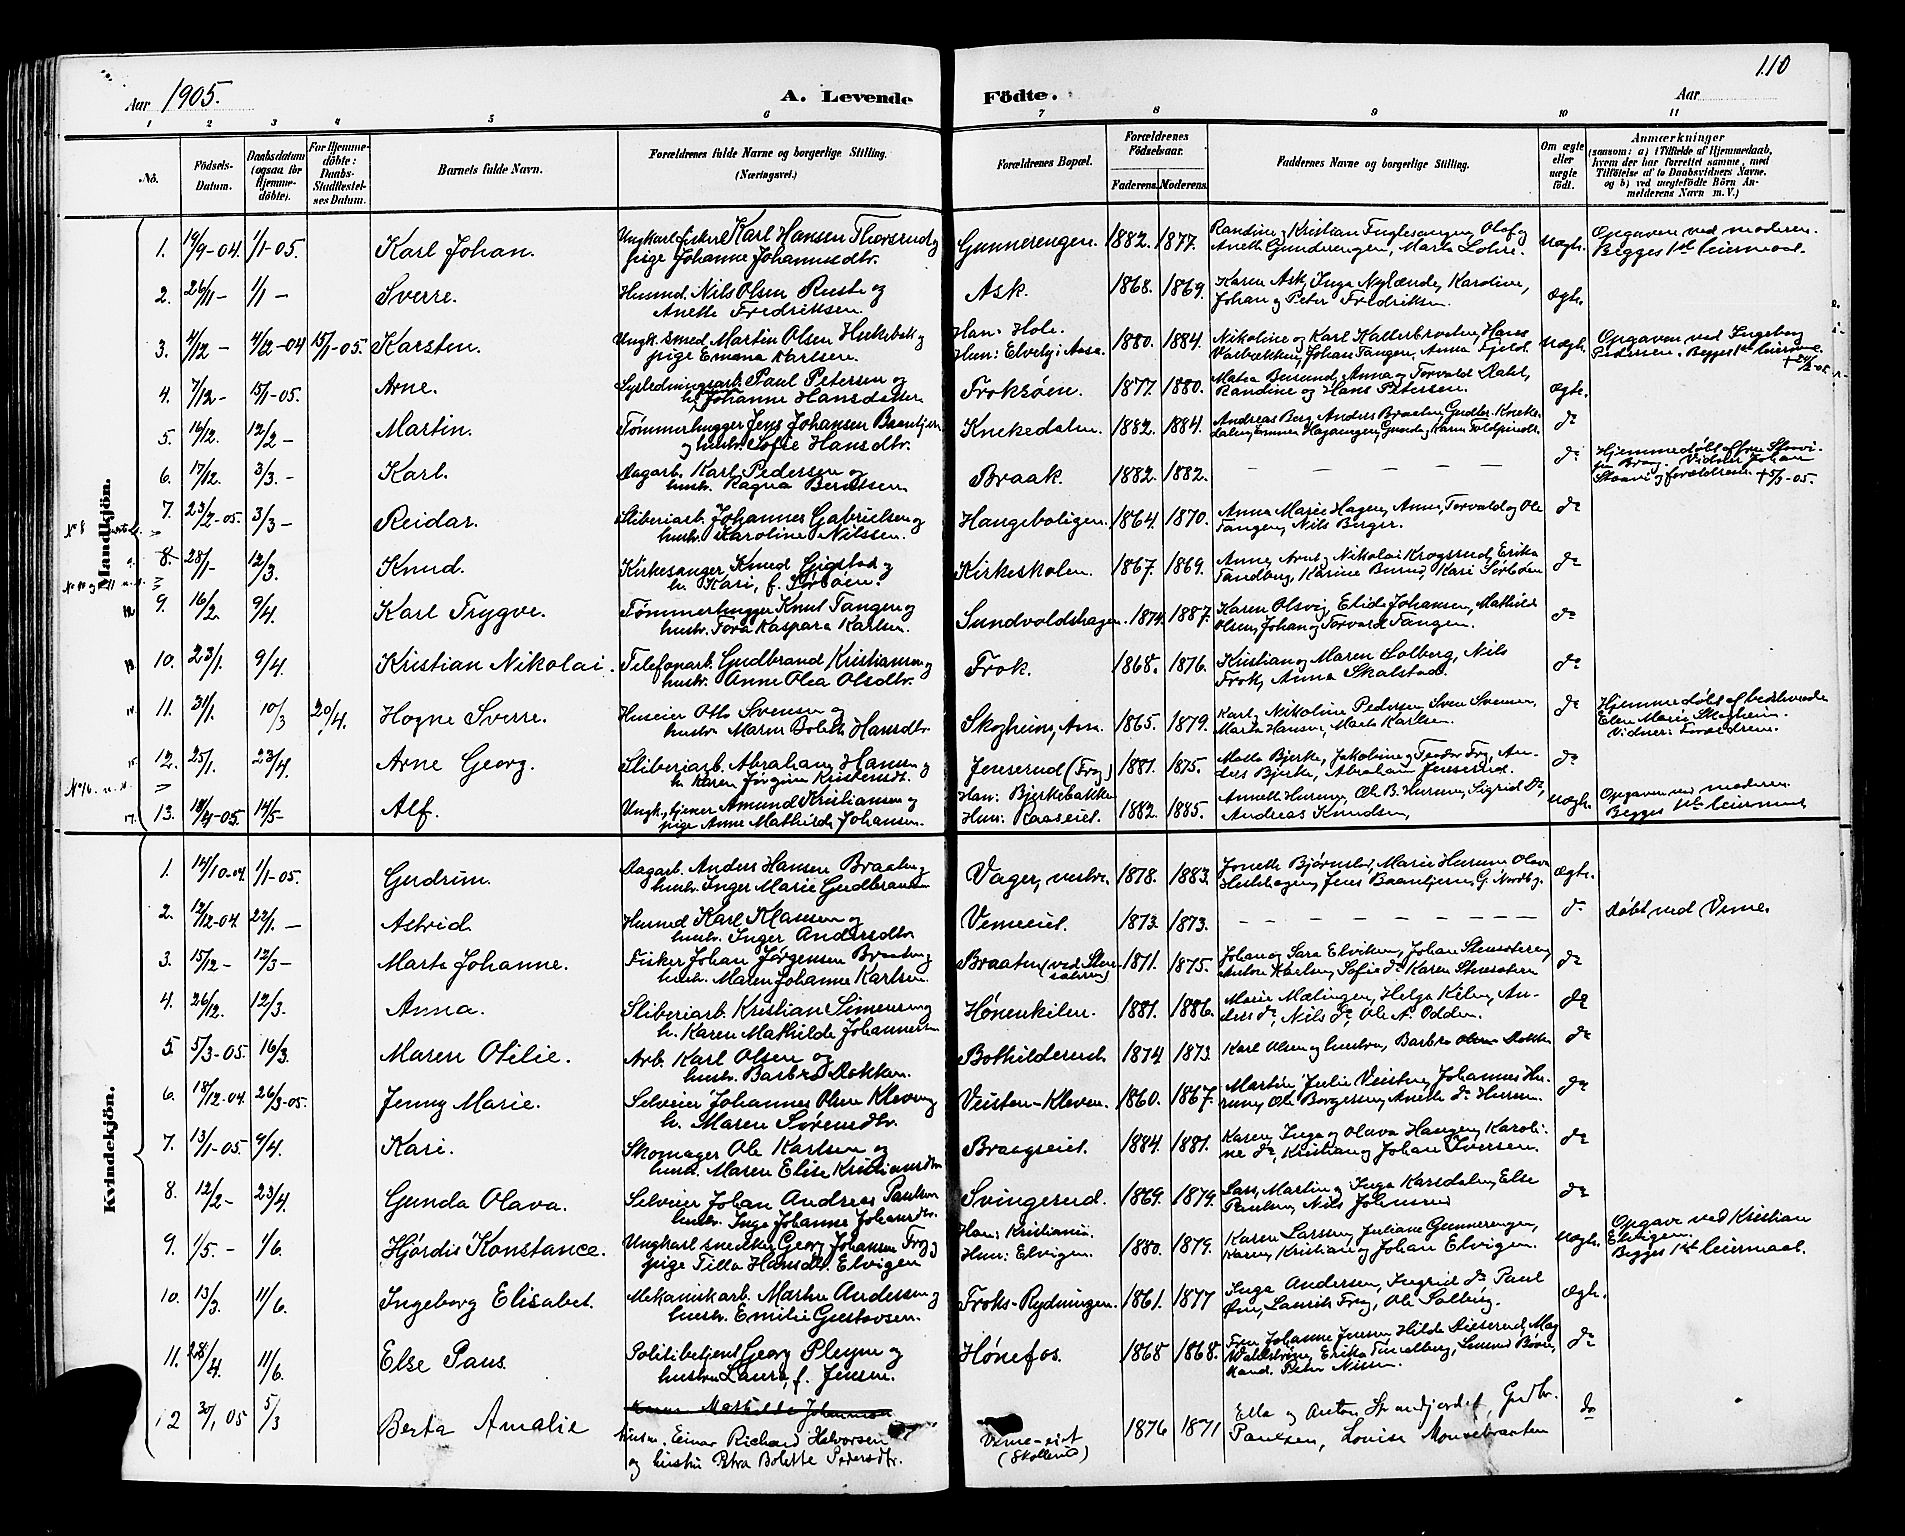 110
Aar 1905. A. Levende Födte. Aar
1 2 3 4 5 6 7 8 9 10 11
No. Födsels-Datum. Daabsdatum (ogsaa for Hjemmedöbte). For Hjemmedöbte: Daabs-Stadfestelses Datum. Barnets fulde Navn. Forældrenes fulde Navne og borgerlige Stilling. (Næringsvei.) Forældrenes Bopæl. Forældrenes Födselsaar. Faderens. Moderens. Faddernes Navne og borgerlige Stilling. Om ægte eller uægte födt. Anmærkninger (saasom: a) i Tilfælde af Hjemmedaab, hvem der har forrettet samme, med Tilföielse af to Daabsvidners Navne, og b) ved uægtefödte Börn Anmelderens Navn m. V.)
Mandkjön.
1. 19/9-04. 1/1-05. Karl Johan. Ungkarl fisker Karl Hansen Thorsrud og Gunnerengen. 1882. 1877. Randine og Kristian Fuglesangen, Olaf og Uægte. Opgaven ved moderen.
pige Johanne Johannesdtr. Anette Gunderengen, Marta Lohre. Begges 1ste leiermaal.
2. 26/11 - 1/1 - Sverre. Husmd. Nils Olsen Rust og Ask. 1868. 1869. Karen Ask, Inga Nylænde, Karoline, ægte.
Anette Fredriksen. Johan og Peter Fredriksen.
3. 4/12 - 4/12-04 15/1-05. Karsten. Ungk. smed Martin Olsen Huksbak og Han: Hole. 1880. 1884. Nikoline og Karl Kalterbraten, Hans Uægte. Opgaven ved Ingeborg
pige Emma Karlsen. Hun: Elvely, Aasa. Johan Tangen, Anna Fjeld. Pedersen. Begges 1ste leiermaal.
4. 7/12 - 15/1-05. Arne. Paul Petersen og Froksøen. 1877. 1880. Anna og Torvald Dahl, ægte.
h. Johanne Hansdatter. Randine og Hans Petersen.
5. 16/12. 12/2 - Martin. Tømmerhugger Jens Johansen Baantjern Knekedalen. 1882. 1884. Andreas Berg, Anders Braaten, Gudbr. Knekedalen, do
og hustr. Sofie Hansdtr.
6. 17/12. 3/3. - Karl. Dagarb. Karl Pedersen og Braak. 1882. 1882. — — — — do Hjemmedøbt af
hustr. Ragna Berntsen. forældrene. + 5/3-05.
7. 23/2-05. 3/3 - Reidar. Sliberiarb. Johannes Gabrielsen og Haugeboligen. 1864. 1870. Anna Marie Hagen, Anna, Torvald og Ole do
hustr. Karoline Nilssen. Tangen, Nils Berger.
8. 28/1 - 12/3. Knud. Kirkesanger Knud Gigstad og Kirkeskolen. 1867. 1869. Anne, Arne og Nikolai Krogsrud, Erika do
h. Kari, f. Sørbøen. Tandberg, Karine Kari Sørbøen
9. 16/2. 9/4. Karl Trygve. Tømmerhugger Knut Tangen og Sundvoldshagen. 1874. 1887. Karen Olsvig, Elida Johansen, Mathilde do
hustr. Tora Kaspara Karlsen. Olsen, Johan og Torvald Tangen.
10. 23/1. 9/4. Kristian Nikolai. Telefonarb. Gudbrand Kristiansen og Frok. 1868. 1876. Kristian og Maren Solberg, Nils do
hustr. Anne Olea Olsdtr. Frok, Anna Skalstad.
11. 31/1. 10/3 20/4. Hogne Sverre. Huseier Otto Svensen og Skogheim, Aasa. 1865. 1879. Karl og Nikoline Pedersen, Sven Svensen, do Hjemmedøbt af bedstemoder
hustr. Maren Bolette Hansdtr. Marta Hansen, Marta Karlsen. Elen Marie Skogheim. Vidner: Forældrene.
12. 25/1. 23/4. Arne Georg. Sliberiarb. Abraham Hansen og Jenserud (Frog) 1881. 1875. Bjerke, Jakobine og Teodor Frog, Anders do
h. Karen Jørgine Kristensdtr. Bjerke, Abraham Jenserud.
13. 18/4-05. 14/5- Alf. Ungk., tjener Amund Kristiansen og Han: Bjerkebakken 1882. 1885. Annette Hurum, Ole B. Hurum, Sigrid do, Uægte. Opgaven ved moderen.
pige Anne Mathilde Johansen. Hun: Raaseiet. Andreas Knudsen. Begges 1ste leiermaal
Kvindekjön.
1. 14/10-04. 1/1-05. Gudrun. Dagarb. Anders Hansen Braaten og Vager, vestre. 1878. 1883. Jonette Bjørnstad, Marie Hurum, Olava ægte.
hustr. Inger Marie Gudbrandsen Jens Baantjern, G. Nordby.
2. 12/12-04. 22/1. - Astrid. Husmd Karl Klausen og Vemeeiet. 1873. 1873. — — — — do Døbt ved Veme.
hustr. Inger Andersdtr
3. 15/12 - 12/3 - Marta Johanne. Fisker Johan Jørgensen Braaten og Braaten (ved Stensæteren) 1871. 1875. Johan og Sara Elviken, Johan Stensæteren, do
hustr. Maren Johanne Karlsen. Anton Karlsen, Sofie do, Karen Stensæteren
4. 26/12. 12/3. Anna. Sliberiarb. Kristian Simensen og Hønenkilen. 1881. 1886. Marie Mælingen, Helga Kilen, Anders do, do
h. Karen Mathilde Johannessen Nils do, Ole A. Odden.
5. 5/3-05. 16/3. Maren Otilie. Arb. Karl Olsen og Bothilderud. 1874 1873 Karl Olsen og hustru, Barbro Olsen Dokken do
hustr. Barbro Dokken.
6. 18/12-04. 26/3-05. Jenny Marie. Selveier Johannes Olsen Kleven og Veisten-Kleven. 1860. 1867. Martin, Julie Veisten, Johannes Hurum, do
h. Maren Sørensdtr. Ole Borgersen, Anette do Hurum.
7. 13/1-05. 9/4. Kari. Skomager Ole Karlsen og Braagseiet. 1884. 1881. Karen, Inga og Olava Haugen, Karoline do
hustr. Maren Elise Kristiansdtr do, Kristian og Johan Iversen.
8. 12/2 - 23/4. Gunda Olava. Selveier Johan Andreas Paulsen Svingerud. 1869. 1879. Lars, Martin og Inga Karsdalen, Else do
hustr. Inga Johanne Johansdtr. Paulsen, Nils Johnsrud
9. 1/5. - 1/6. Hjørdis Konstance. Ungkarl snedker Georg Johansen Frog og Han: Kristiania. 1880. 1879. Karen Larsen, Juliane Gunnerengen, Uægte. Opgave ved Kristian Elvigen.
pige Tilla Hansdtr. Elvigen Hun: Elvigen. Karen, Kristian og Johan Elvigen. Begges 1ste leiermaal.
10. 13/3. 11/6. Ingeborg Elisabet. Mekaniskarb. Martin Andersen og Froks-Rydningen. 1861. 1877 Inga Andersen, Ingrid do, Paul ægte.
hustr. Emilie Gustavsen. Øen, Laurits Frog, Ole Solberg.
11. 28/4. 11/6. Else Paus. Politibetjent Georg Pleym og Hønefos. 1868 1868. Fru Johanne Jensen, Hilda do
hustru Laura, f. Jensen. Erika Tandberg, Peter Nissen.
12 30/1 05 5/3 Berta Amalie Karen Mathilde Johannessen
Husm. Einar Richard Halvorsen Veme-eiet 1876 1871 Ella og Anton Strandjordet, Gudbr. do
og hustru Petra Bolette Pedersdtr. (Skollerud) Paulsen, Lovise Monsebraaten